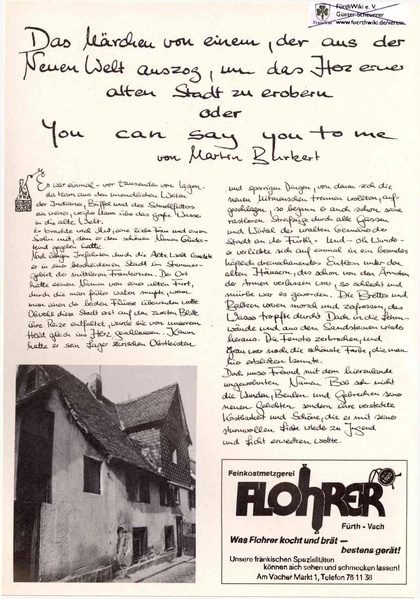 FürthWiki e. V.
Günter Scheuerer
www.fuerthwiki.de/verein
Das Märchen von einem, der aus der
Neuen Welt auszog, um das Herz einer
alten Stadt zu erobern
oder
You can say you to me
von Martin Burkert
Es war einmal - vor tausenden von Tagen -
da kam aus den unendlichen Weiten
der Indianer, Büffel und des Schnellfotos
ein weiser, weißer Mann über das große Wasser
in die alte Welt.
Er brachte viel Mut, eine liebe Frau und einen
Sohn mit, dem er den schönen Namen Glücks-
kind gegeben hatte.
Nach langen Irrfahrten durch die Alte Welt landete
er in einer bescheidenen Stadt im Stammes-
gebiet der mittleren Frankonen. Der Ort
hatte seinen Namen von einer alten Furt,
durch die man früher waten mußte, wenn
man einen der beiden Flüsse überwinden wollte.
Obwohl diese Stadt erst auf den zweiten Blick
ihre Reize entfaltet, wurde sie von unserem
Held gleich ins Herz geschlossen. Kaum
hatte er sein Lager zwischen Obstkisten
und sperrigen Dingen, von denen sich die
neuen Mitmenschen trennen wollten, auf-
geschlagen, so begann er auch schon seine
rastlosen Streifzüge durch alle Gassen
und Winkel der uralten Gemäuer der
Stadt an der Furth. Und - oh Wunder -
er verliebte sich auf einmal in ein besonders
kläglich dreinschauendes Entlein unter den
alten Häusern, das schon von den Ärmsten
der Armen verlassen war, so schlecht und
mürbe war es geworden. Die Bretter und
Balken waren morsch und zerfressen, das
Wasser tropfte durchs Dach in die Lehm-
wände und aus den Sandsteinen wieder
heraus. Die Fenster zerbrochen, und
Grau war noch die schönste Farbe, die man
hier entdecken konnte.
Doch unser Freund mit dem hierzulande
ungewohnten Namen Bob sah nicht
die Wunden, Beulen und Gebrechen seiner
neuen Geliebten sondern ihre versteckte
Kostbarkeit und Schöne, die er mit seiner
stürmischen Liebe wieder zu Jugend
und Licht erwecken wollte.
Feinkostmetzgerei
FLOHRER
Fürth - Vach
Was Flohrer kocht und brät —
bestens gerät!
Unsere fränkischen Spezialitäten
können sich sehen und schmecken lassen!
Am Vacher Markt 1, Telefon 76 11 38